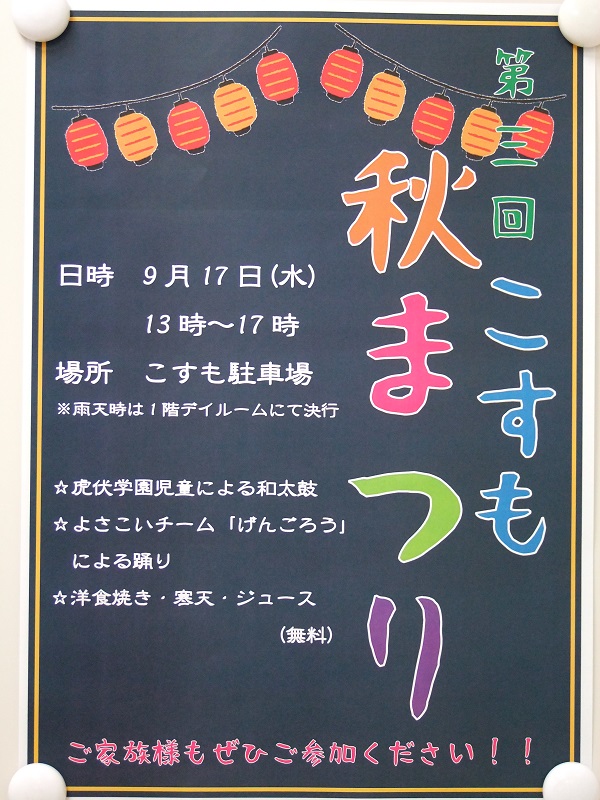 第三回
こすも
秋まつり
日時 9月17日(水)
13時～17時
場所 こすも駐車場
※雨天時は1階デイルームにて決行
☆虎伏学園児童による和太鼓
☆よさこいチーム「げんごろう」
による踊り
☆洋食焼き・寒天・ジュース
(無料)
ご家族様もぜひご参加ください！！